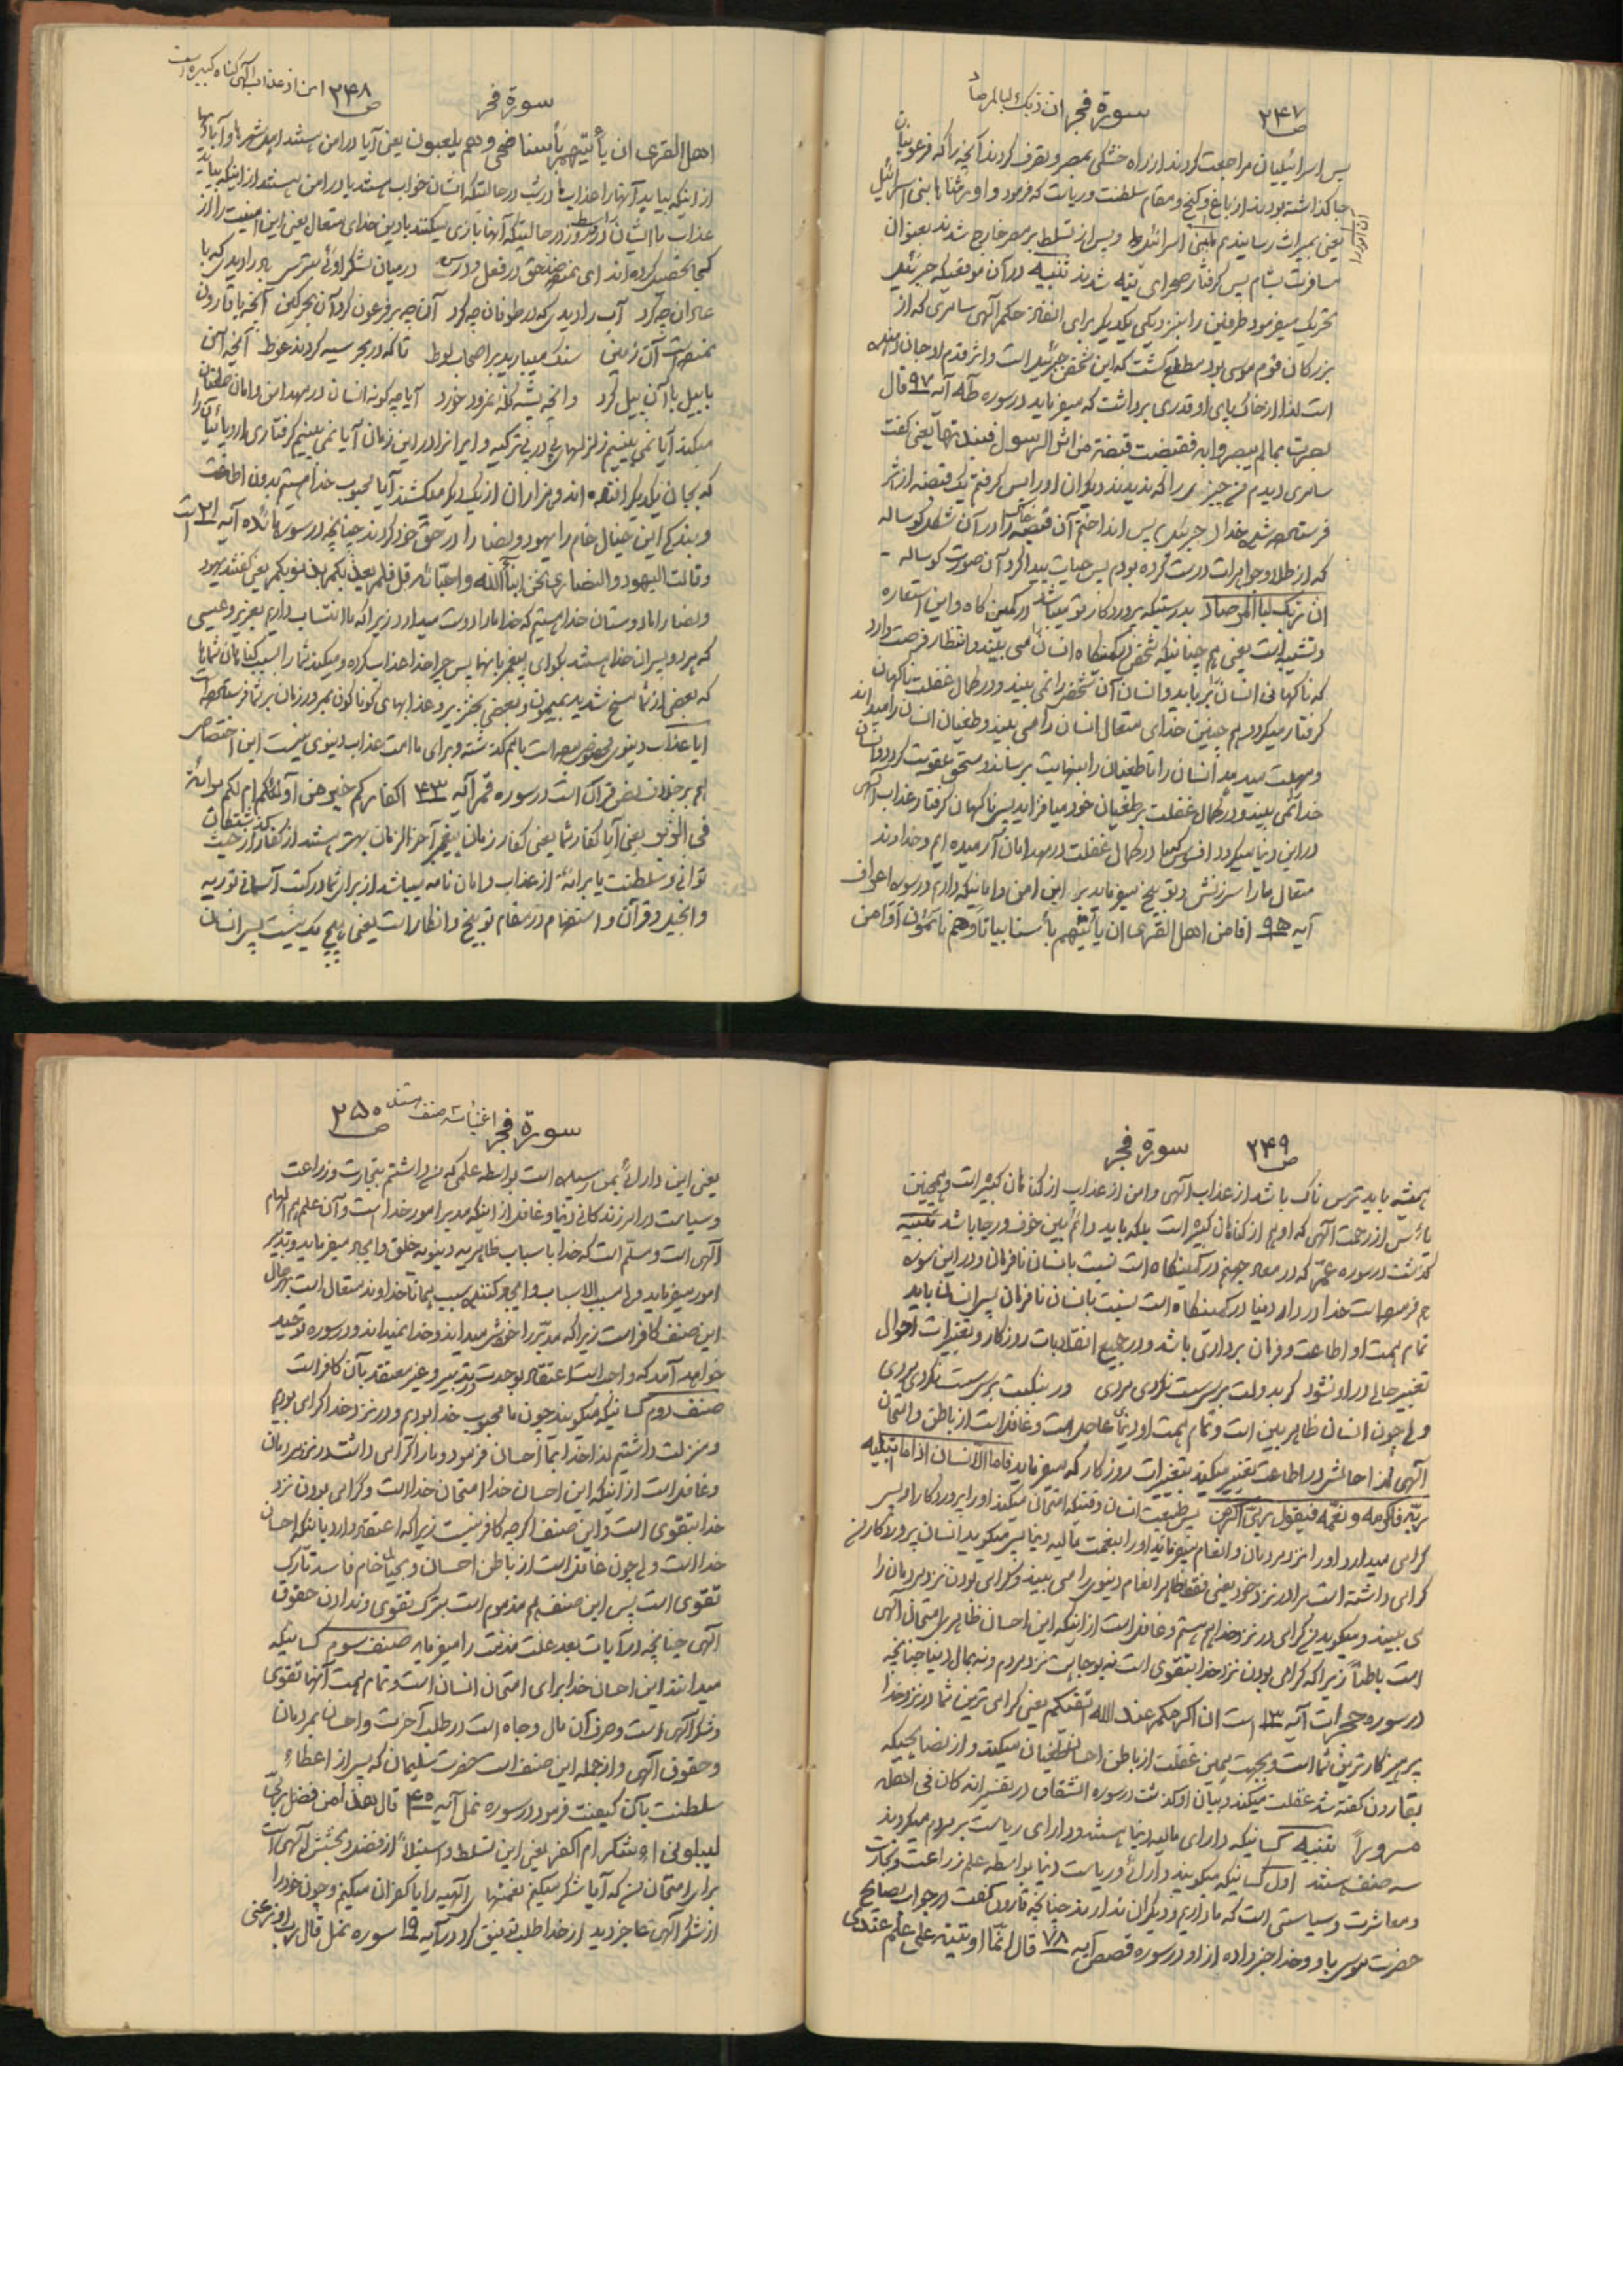 ص ۲۴۷ سورة فجر ان ربک لبالمرصاد
پس اسرائیلیان مراجعت کردند از راه خشکی بمصر و تصرف کردند آنچه را که فرعونیان
جا گذاشته بودند از باغ و گنج و مقام سلطنت و ریاست که فرمود و اورثناها بنی اسرائیل
یعنی بمیراث رساندیم ببنی اسرائیل و پس از تسلط بر مصر خارج شدند بعنوان
مسافرت بشام پس گرفتار صحرای تیه شدند تنبیه در آن موقعیکه جبرئیل
تحریک میفرمود طرفین را بنزدیکی یکدیگر برای انفاذ حکم الهی سامری که از
بزرگان قوم موسی بود مطلع گشت که این شخص جبرئیل است و اثر قدم او جان دهنده
است لذا از خاک پای او قدری برداشت که میفرماید در سوره طه آیه ۹۷ قال
بصرت بمالم یبصروا به فقبضت قبضة من اثر الرسول فنبذتها یعنی گفت
سامری دیدم من چیزی را که ندیدند دیگران او را پس گرفتم یک قبضه از اثر
فرستاده شده خدا جبرئیل پس انداختم آن قبضه را در آن شکل گوساله
که از طلا و جواهرات درست کرده بودم پس حیات پیدا کرد آن صورت گوساله
ان ربک لبالمرصاد بدرستیکه پروردگار تو میباشد در کمین گاه و این استعاره
و تشبیه است یعنی هم چنانیکه شخص در کمینگاه انسان را می بیند و انتظار فرصت دارد
که ناگهانی انسان را برباید و انسان آن شخص را نمی بیند و در کمال غفلت ناگهان
گرفتار میگردد هم چنین خدای متعال انسان را می بیند و طغیان انسان را میداند
و مهلت میدهد انسان را تا طغیان را بنهایت برساند و مستحق عقوبت گردد و انسان
خدا را نمی بیند و در کمال غفلت بر طغیان خود میافزاید پس ناگهان گرفتار عذاب الهی
در این دنیا میگردد افسوس که ما در کمال غفلت در مهد امان آرمیده ایم و خداوند
متعال ما را سرزنش و توبیخ میفرماید بر این امن و امانیکه داریم در سوره اعراف
آیه ۹۵ افامن اهل القری ان یأتیهم بأسنا بیاتا و هم نائمون اوامن
ص ۲۴۸ سورة فجر امن از عذاب الهی گناه کبیره است
اهل القری ان یأتیهم بأسنا ضحی و هم یلعبون یعنی آیا در امن هستند اهل شهرها و آبادیها
از اینکه بیاید آنها را عذاب ما در شب در حالتیکه ایشان خواب هستند یا در امن هستند از اینکه بیاید
عذاب ما ایشان را در وسط روز در حالتیکه آنها بازی میکنند با دین خدای متعال یعنی این امنیت را از
کجا تحصیل کرده اند ای حق در فعل و در میان شکر او ئی بترس باد را دیدی که با
عادیان چه کرد آب را دیدی که در طوفان چه کرد آن چه بر فرعون کرد آن بحر کین آنچه با قارون
نمود است آن زمین سنگ میبارید بر اصحاب لوط تا که در بحر سیه کردند غوط آنچه آن
بابیل با آن پیل کرد و آنچه پشه کله نمرود خورد آیا چه گونه انسان در مهد امن و امان
میکند آیا نمی بینیم زلزلهای پی در پی ترکیه و ایران را در این زمان آیا نمی بینیم گرفتاری اروپائیان را
که بجان یکدیگر افتاده اند و هزاران از یک دیگر میکشند آیا محبوب خدا هستیم بدون اطاعت
و بندگی این خیال خام را یهود و نصارا در حق خود کردند چنانچه در سوره مائده آیه ۲۱ است
و قالت الیهود و النصاری نحن ابناء الله و احباؤه قل فلم یعذبکم بذنوبکم یعنی گفتند یهود
و نصارا ما دوستان خدا هستیم که خدا ما را دوست میدارد زیرا که ما انتساب داریم بعزیر و عیسی
که هر دو پسران خدا هستند بگو ای پیغمبر بآنها پس چرا خدا عذاب کرده و میکند شما را بسبب گناهان شماها
که بعضی از شما مسخ شدید بمیمون و بعضی بخنزیر و عذابهای گوناگون بمرور زمان بر شما فرستاده است
آیا عذاب دنیوی مخصوص بوده است بامم گذشته و برای ما امت عذاب دنیوی نیست این اختصاص
هم بر خلاف نص قرآن است در سوره قمر آیه ۴۳ اکفارکم خیر من اولئکم ام لکم برائة
فی الزبر یعنی آیا کفار شما یعنی کفار زمان پیغمبر آخر الزمان بهتر هستند از کفار گذشتگان از حیث
توانائی و سلطنت یا برائة از عذاب و امان نامه میباشد از برای شما در کتب آسمانی توریة
و انجیل و قرآن و استفهام در مقام توبیخ و انکار است یعنی هیچ یک نیست پس انسان
ص ۲۴۹ سورة فجر
همیشه باید ترس ناک باشد از عذاب الهی و امن از عذاب از گناهان کبیره است و همچنین
مأیوس از رحمت الهی که او هم از گناهان کبیره است بلکه باید دائم بین خوف و رجا باشد تنبیه
گذشت در سوره عم که در معاد جهنم در کمینگاه است نسبت بانسان نافرمان و در این سوره
هم فرموده است خدا در دار دنیا در کمینگاه است نسبت بانسان نافرمان پس انسان باید
تمام همت او اطاعت و فرمان برداری باشد و در جمیع انقلابات روزگار و تغییرات احوال
تغییر حالی در او نشود گر بدولت برسی مست نگردی مردی ور بنکبت برسی پست نگردی مردی
ولی چون انسان ظاهر بین است و تمام همت او دنیای عاجل است و غافل است از باطن و امتحان
الهی لذا حالش در اطاعت تغییر میکند بتغییرات روزگار که میفرماید فاما الانسان اذا ما ابتلیه
ربه فاکرمه و نعمه فیقول ربی اکرمن پس طبیعت انسان وقتیکه امتحان میکند او را پروردگار او پس
گرامی میدارد او را نزد مردمان و انعام میفرماید او را بنعمت مالیه دنیا پس میگوید انسان پروردگار من
گرامی داشته است مرا در نزد خود یعنی فقط ظاهر انعام دنیوی را می بیند و گرامی بودن نزد مردمان را
می بیند و میگوید من گرامی در نزد خدا هم هستم و غافل است از اینکه این احسان ظاهری امتحان الهی
است باطناً زیرا که گرامی بودن نزد خدا بتقوی است نه بوجاهت نزد مردم و نه بمال دنیا چنانچه
در سوره حجرات آیه ۱۳ است ان اکرمکم عند الله اتقیکم یعنی گرامی ترین شما در نزد خدا
پرهیزکارترین شما است و بجهت همین غفلت از باطن احسان طغیان میکند و از نصایحیکه
بقارون گفته شد غفلت میکند و بیان او گذشت در سوره انشقاق در تفسیر انه کان فی اهله
مسروراً تنبیه کسانیکه دارای مالیه دنیا هستند و دارای ریاست بر مردم میگردند
سه صنف هستند اول کسانیکه میگویند دارائی و ریاست دنیا بواسطه علم زراعت و تجارت
و معاشرت و سیاستی است که ما داریم و دیگران ندارند چنانچه قارون گفت در جواب نصایح
حضرت موسی باو و خدا خبر داده از او در سوره قصص آیه ۷۸ قال انما اوتیته علی علم عندی
ص ۲۵۰ سورة فجر اغنیاء سه صنف هستند
یعنی این دارائی بمن رسیده است بواسطه علمی که من داشتم بتجارت و زراعت
و سیاست در امر زندگانی دنیا و غافل از اینکه مدبر امور خدا است و آن علم هم الهام
الهی است و مسلم است که خدا با سباب ظاهریه دنیویه خلق و ایجاد میفرماید و تدبیر
امور میفرماید ولی مسبب الاسباب و ایجاد کننده سبب همانا خداوند متعال است بهر حال
این صنف کافر است زیرا که مدبر را خودش میداند و خدا نمیداند و در سوره توحید
خواهد آمد که واحد است اعتقاد بوحدت در تدبیر و غیر معتقد بآن کافر است
صنف دوم کسانیکه میگویند چون ما محبوب خدا بودیم و در نزد خدا گرامی بودیم
و منزلت داشتیم لذا خدا بما احسان فرمود و ما را گرامی داشت در نزد مردمان
و غافل است از اینکه این احسان خدا امتحان خدا است و گرامی بودن نزد
خدا بتقوی است و این صنف اگر چه کافر نیست زیرا که اعتقاد دارد باینکه احسان
خدا است ولی چون غافل است از باطن احسان و بخیال خام فاسد تارک
تقوی است پس این صنف هم مذموم است بترک تقوی و ندادن حقوق
الهی چنانچه در آیات بعد علت مذمت را میفرماید صنف سوم کسانیکه
میدانند این احسان خدا برای امتحان انسان است و تمام همت آنها تقوی
و شکر الهی است و صرف آن مال و جاه است در طلب آخرت و احسان بمردمان
و حقوق الهی و از جمله این صنف است حضرت سلیمان که پس از اعطاء
سلطنت بآن کیفیت فرمود در سوره نمل آیه ۴۰ قال هذا من فضل ربی
لیبلونی ءاشکر ام اکفر یعنی این تسلط و استیلاً از فضل و بخشش الهی است
برای امتحان من که آیا شکر میکنم نعمتهای الهیه را یا کفران میکنم و چون خود را
از شکر الهی عاجز دید از خدا طلب توفیق کرد در آیه ۱۹ سوره نمل قال رب اوزعنی